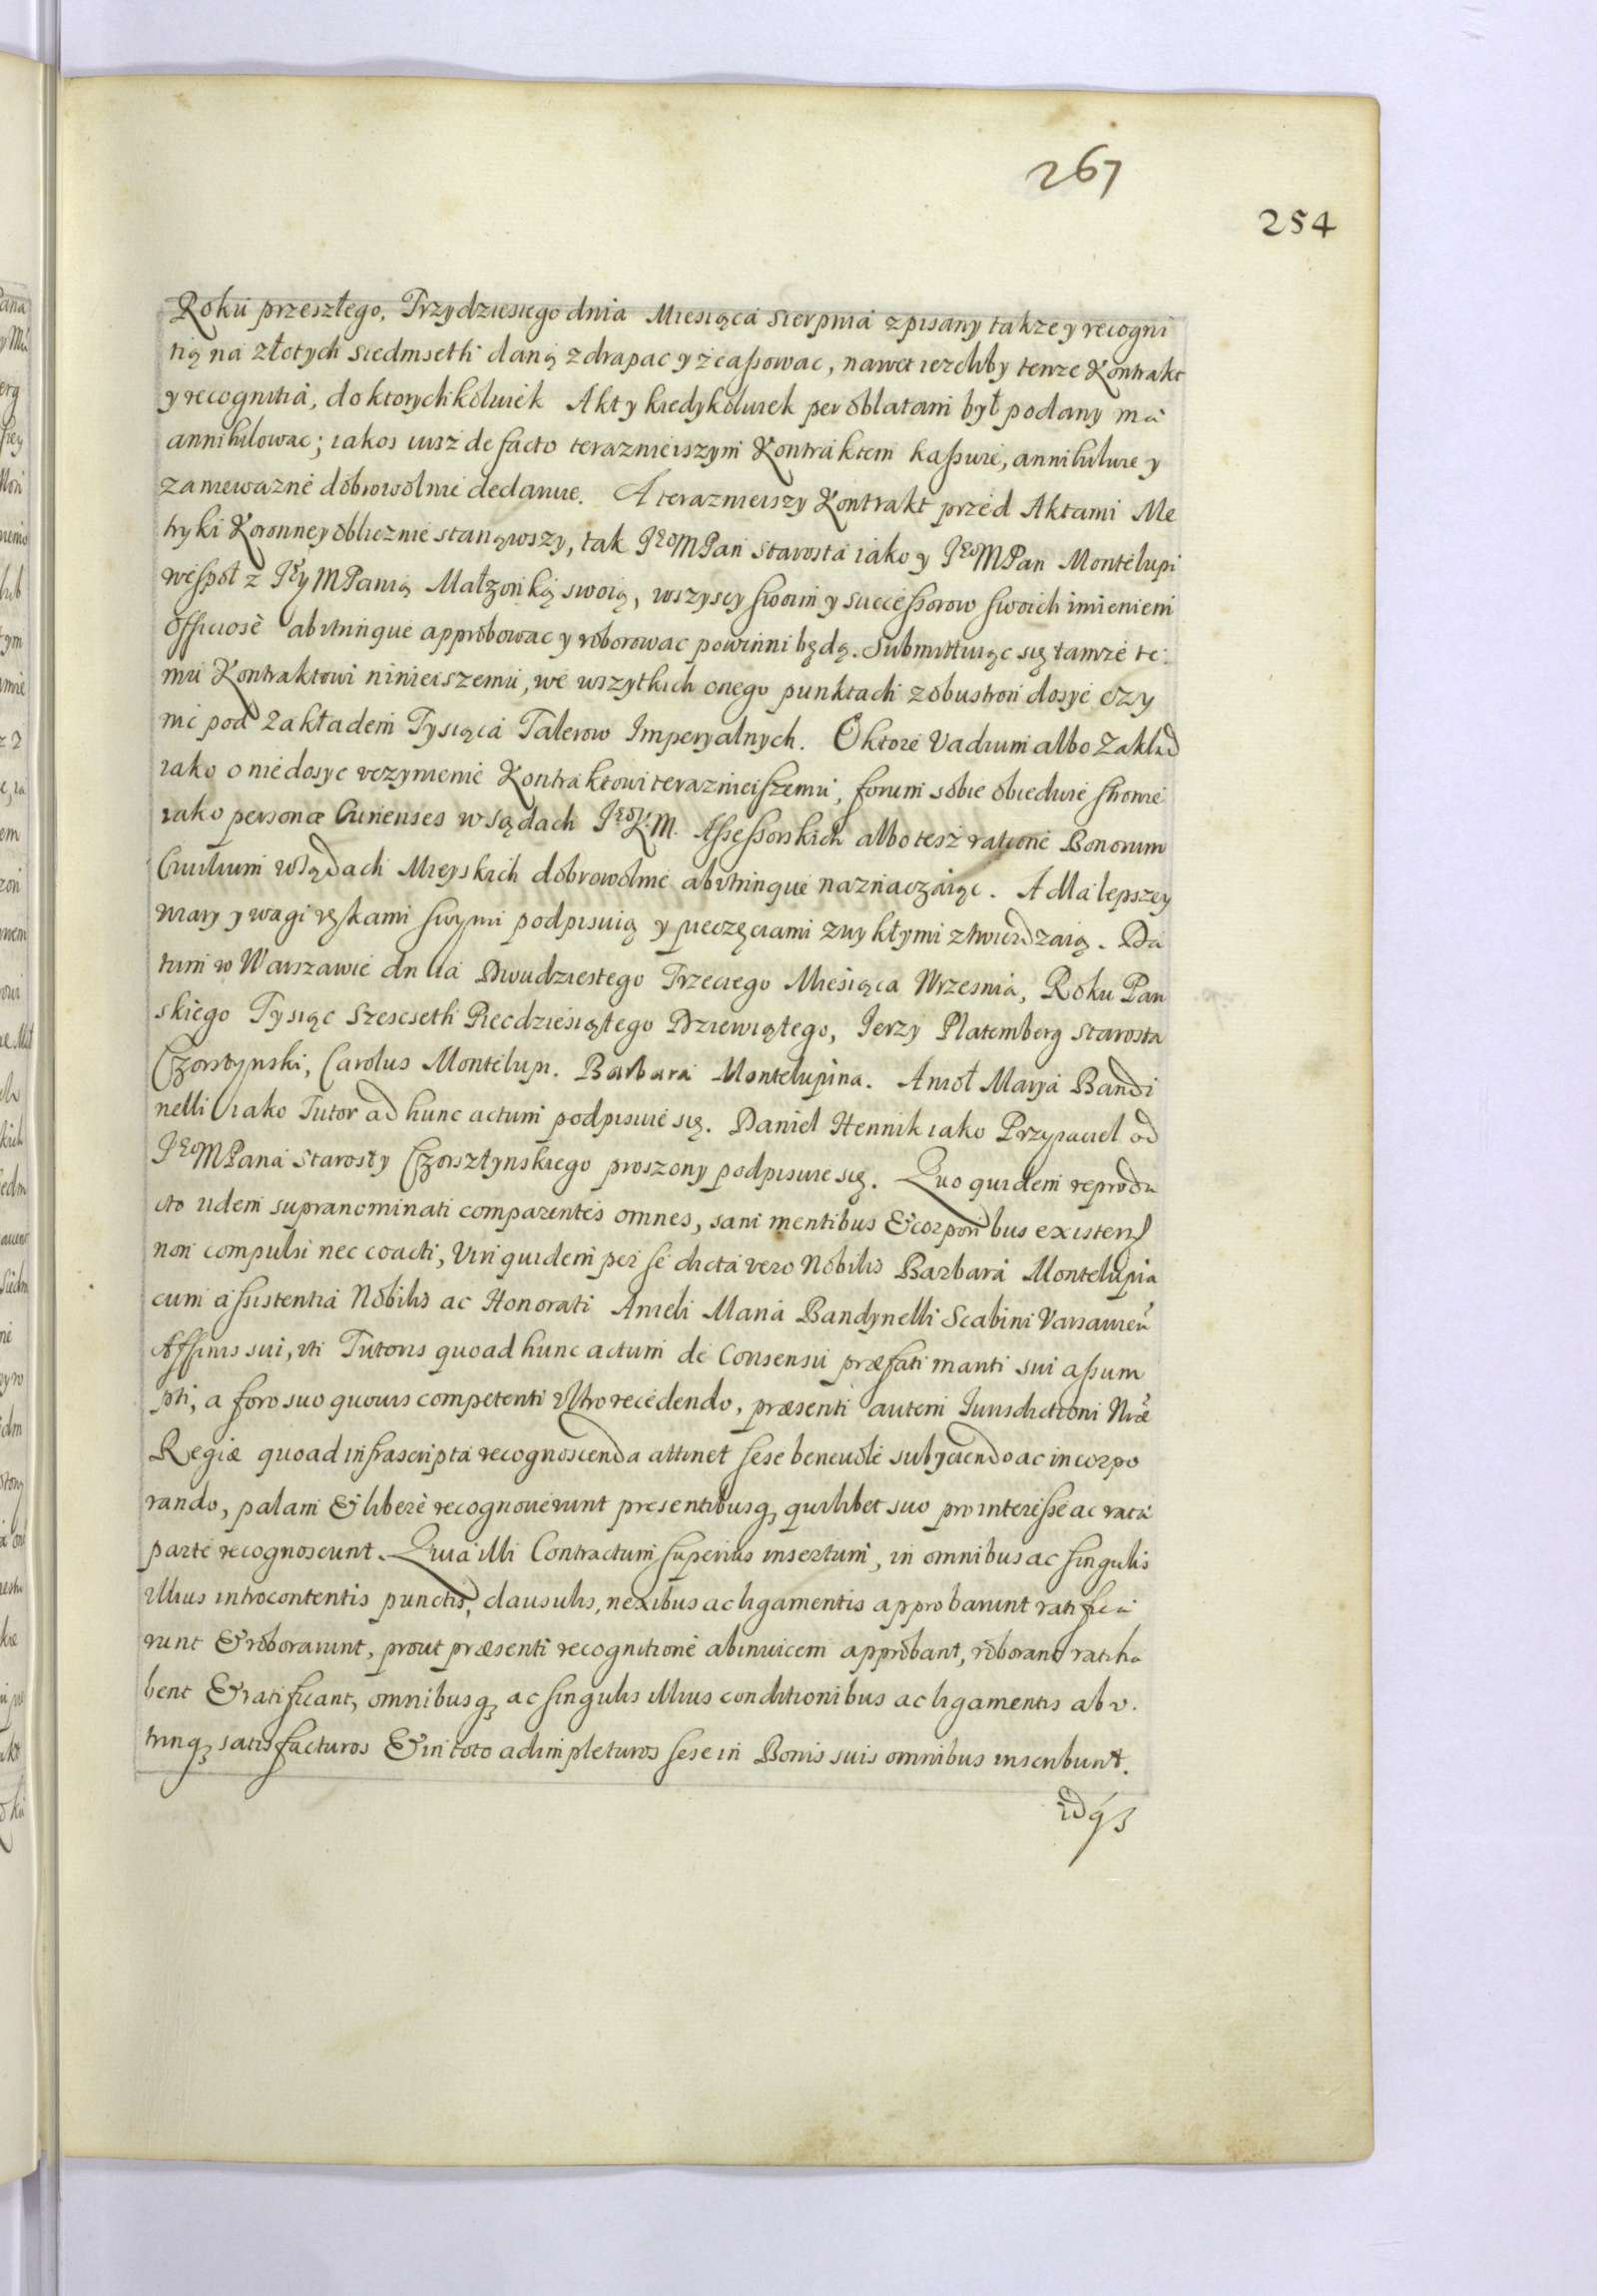 267
254
Roku przeszłego, Trzydziesiego dnia Miesiąca Sierpnia zpisany takze y recogni
tią na złotych siedmseth daną zdrapac y zcassowac, nawet iezeliby tenze Kontrakt
y recognitia, do ktorychkolwiek Akt y kiedykolwiek per oblatam był podany ma
annihilowac; iakos iusz de facto terazniejszym Kontraktem kassuie, annihiluie y
za niewazne dobrowolnie declaruie. A terazniejszy Kontrakt przed Aktami Me
tryki Koronney oblicznie stanąwszy, tak JeoMPan Starosta iako y JeoMPan Montelupi
wespoł z JeyMPanią Małzonką swoią, wszyscy swoim y successorow swoich imieniem
officiosè ab utrinque approbowac y roborowac powinni będą. Submittuiąc się tamze te
mu Kontraktowi ninieiszemu, we wszytkich onego punktach z obustron dosyc czy
nic pod Zakładem Tysiąca Talerow Imperyalnych. O ktore Vadium albo Zakład
iako o niedosyc vczynienie Kontraktowi terazniejszemu, forum sobie obieduie strone
iako personæ Curienses w Sądach JeoK.M. Assessorskich albo tesz ratione Bonorum
Ciuilium w Sądach Mieyskich dobrowolnie ab utrinque naznaczaiąc. A dla lepszey
wiary y wagi rękami swymi podpisuią y pieczęciami zwykłymi ztwierdzaią. Da
tum w Warszawie dnia Dwudziestego Trzeciego Miesiąca Wrzesnia, Roku Pan
skiego Tysiąc Szescseth Piecdziesiątego Dziewiątego, Jerzy Platemberg Starosta
Czorstynski, Carolus Montelupi. Barbara Montelupina. Anioł Marya Bandi
nelli iako Tutor ad hunc actum podpisuie się. Daniel Hennik iako Przyiaciel od
JeoMPana Starosty Czorsztynskiego proszony podpisuie się. Quo quidem reprodu
cto iidem supranominati comparentes omnes, sani mentibus & corporibus existen
non compulsi nec coacti, Viri quidem per se dicta vero Nobilis Barbara Montelupia
cum assistentia Nobilis ac Honorati Anieli Maria Bandynelli Scabini Varsauien
Affinis sui, vti Tutoris quoad hunc actum de Consensu præfati mariti sui assum
pti, a foro suo quouis competenti Vltro recedendo, præsenti autem Jurisdictioni Nræ
Regiæ quoad infrascripta recognoscenda attinet sese beneuolè subyciendo ac incorpo
rando, palam & liberè recognouerunt presentibusq, quilibet suo pro interesse ac rata
parte recognoscunt. Quia illi Contractum superius insertum, in omnibus ac singulis
illius introcontentis punctis, clausulis, nexibus ac ligamentis approbarunt ratifica
runt & roborarunt, prout præsenti recognitione abinuicem approbant, roborant ratiha
bent & ratificant, omnibusq ac singulis illius conditionibus ac ligamentis ab v.
trinq satisfacturos & in toto adimpleturos sese in Bonis suis omnibus inscribunt.
idq